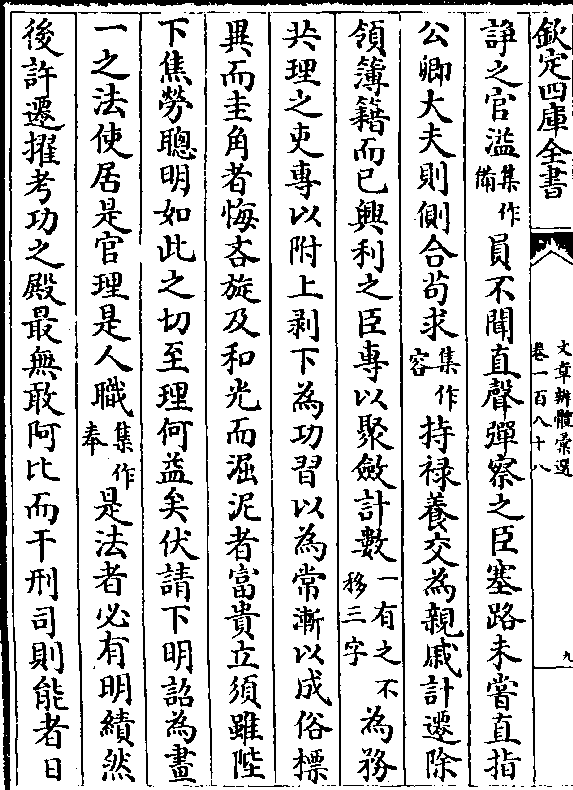 欽定四庫全書
文章辨體彙選
卷一百八十八
九
諍之官溢集作備員不聞直聲彈察之臣塞路未嘗直指
公卿大夫則偷合茍求集作容持禄養交為親戚計遷除
領簿籍而已興利之臣專以聚斂計數一有之不移三字為務
共理之吏專以附上剥下為功習以為常漸以成俗標
異而圭角者悔吝旋及和光而淈泥者富貴立須雖陛
下焦勞聰明如此之切至理何益矣伏請下明詔為畫
一之法使居是官理是人職集作奉是法者必有明績然
後許遷擢考功之殿最無敢阿比而干刑司則能者日